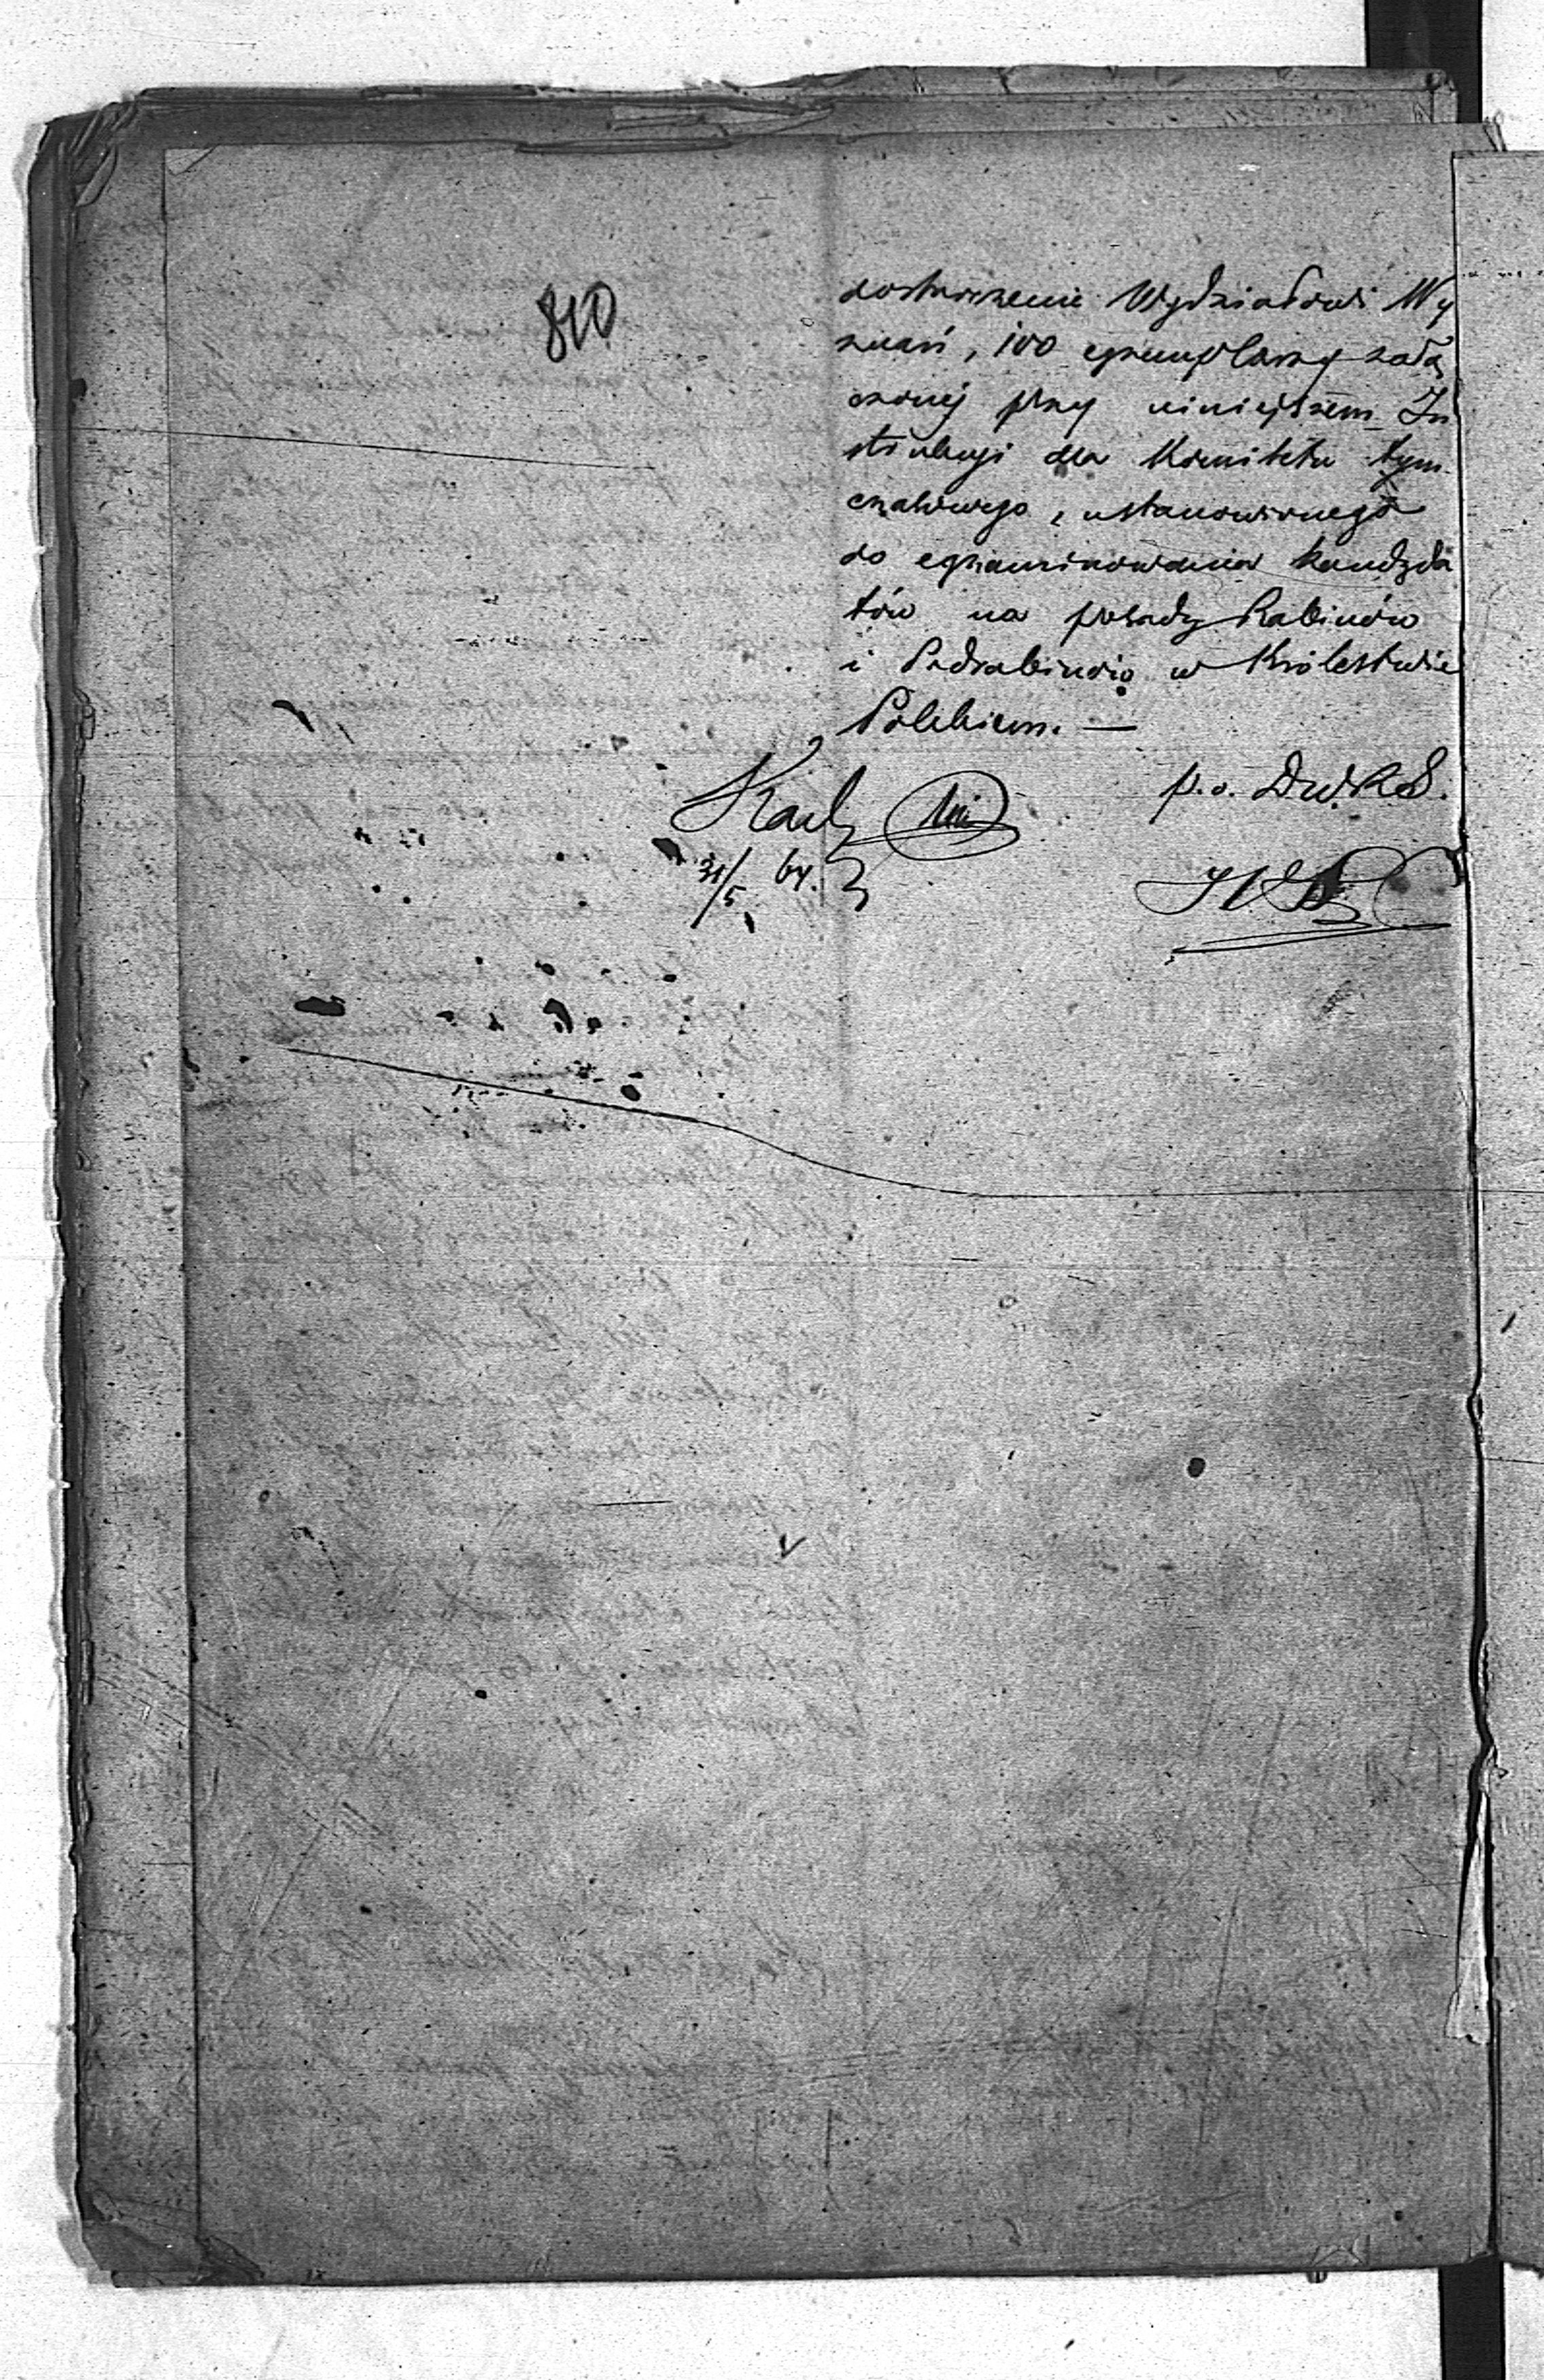 810
dostarczenie Wydziałowi Wy
znań, 100 egzemplarzy załą
czonej przy niniejszem In
strukcji dla Komitetu tym
czasowego, ustanowionego
do egzaminowania kandyda
tów na posady Rabinów
i Podrabinów w Królestwie
Polskiem. —
p.o. D.W.R.S.
31/5 64.